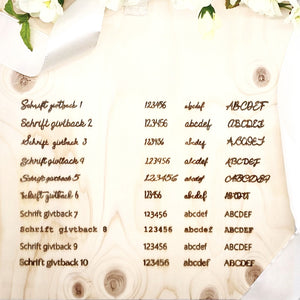 Schrift givtback 1 123456 abcdef ABCDEF
Schrift givtback 2 123456 abcdef ABCDEF
Schrift givtback 3 123456 abcdef ABCDEF
Schrift givtback 4 123456 abcdef ABCDEF
Schrift givtback 5 123456 abcdef ABCDEF
Schrift givtback 6 123456 abcdef ABCDEF
Schrift givtback 7 123456 abcdef ABCDEF
Schrift givtback 8 123456 abcdef ABCDEF
Schrift givtback 9 123456 abcdef ABCDEF
Schrift givtback 10 123456 abcdef ABCDEF